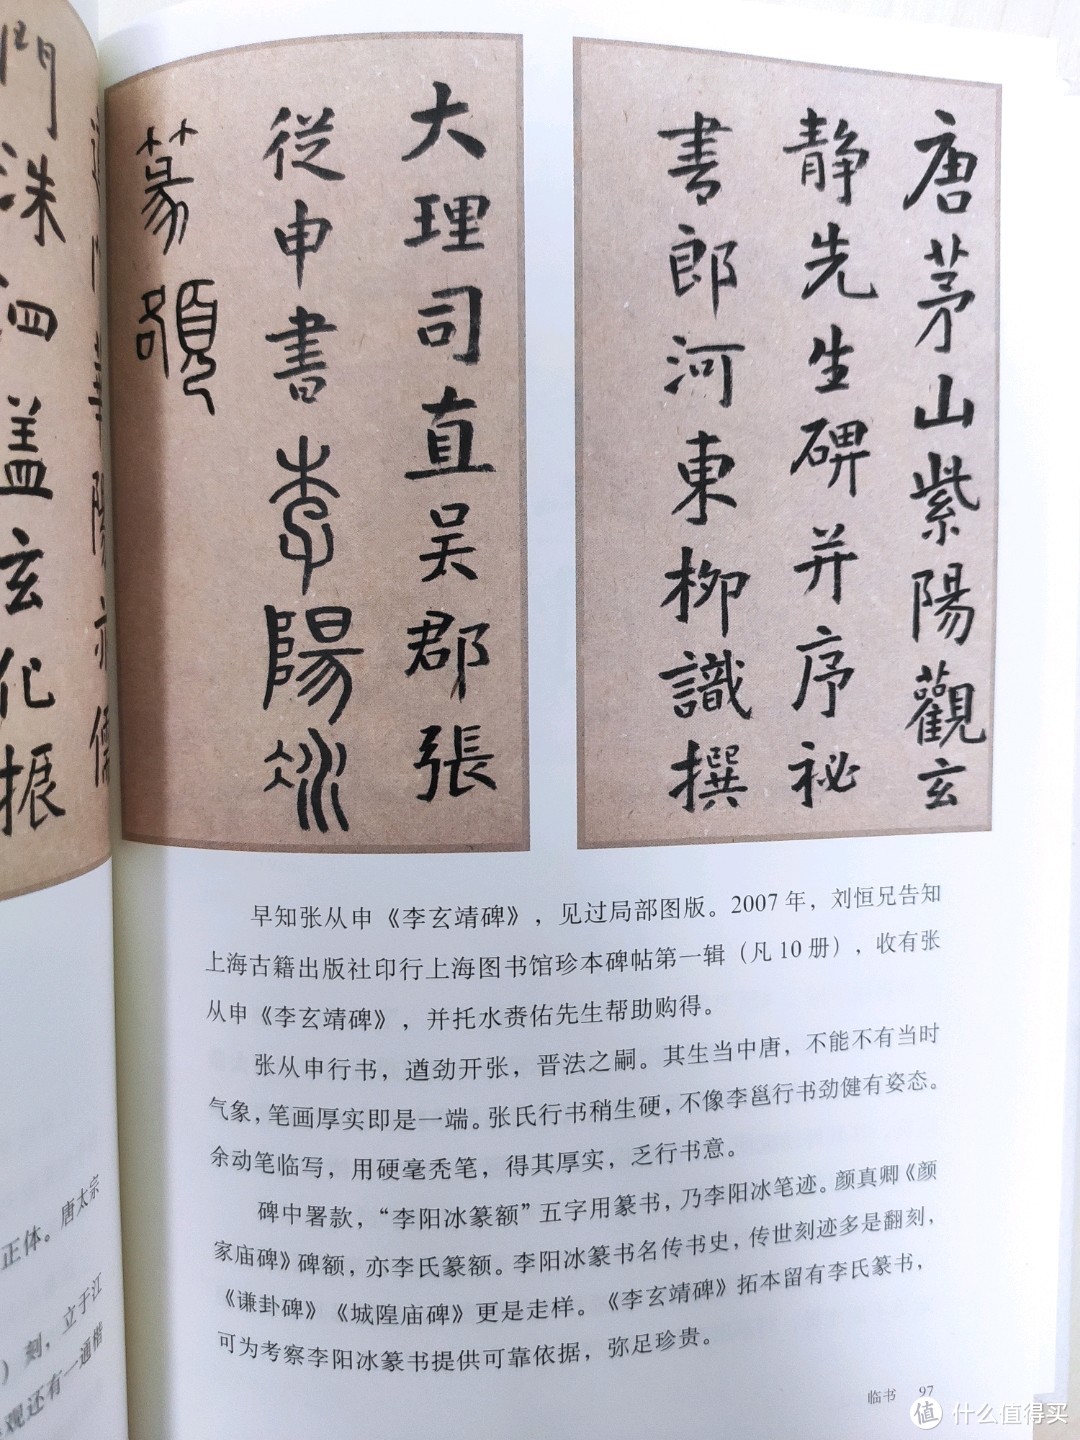 道門華陽亦儒
門洙泗蓋玄化振
正体。唐太宗
）刻，立于江
观还有一通楷
唐茅山紫陽觀玄
静先生碑并序祕
書郎河東柳識撰
大理司直吴郡張
従申書李陽冰
篆額
早知张从申《李玄靖碑》，见过局部图版。2007年，刘恒兄告知
上海古籍出版社印行上海图书馆珍本碑帖第一辑（凡10册），收有张
从申《李玄靖碑》，并托水赉佑先生帮助购得。
张从申行书，遒劲开张，晋法之嗣。其生当中唐，不能不有当时
气象，笔画厚实即是一端。张氏行书稍生硬，不像李邕行书劲健有姿态。
余动笔临写，用硬毫秃笔，得其厚实，乏行书意。
碑中署款，“李阳冰篆额”五字用篆书，乃李阳冰笔迹。颜真卿《颜
家庙碑》碑额，亦李氏篆额。李阳冰篆书名传书史，传世刻迹多是翻刻，
《谦卦碑》《城隍庙碑》更是走样。《李玄靖碑》拓本留有李氏篆书，
可为考察李阳冰篆书提供可靠依据，弥足珍贵。
临书 97
值 什么值得买